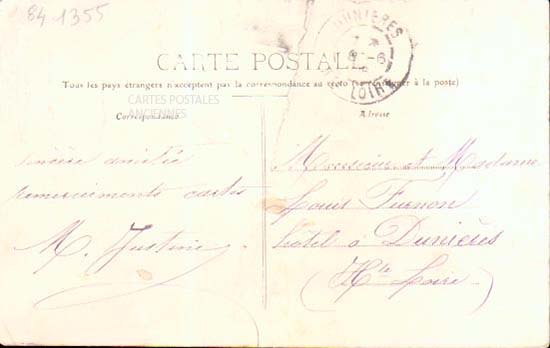 84 1355
DUNIÈRES
LOIRE
CARTE POSTALE
Tous les pays étrangers n'acceptent pas la correspondance au recto (se renseigner à la poste)
CARTES POSTALES
ANCIENNES
Correspondance
Adresse
sincère amitié
remerciements cartes
M. Justine
Monsieur et Madame
Louis Furnon
hôtel à Dunières
(Hte Loire)